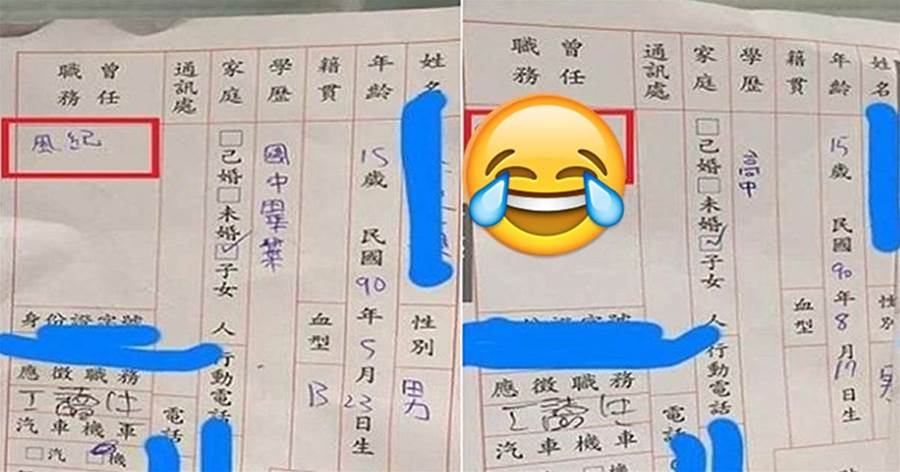 姓名
性別
男
年齡
15歲 民國90年5月23日生
籍貫
血型
B
學歷
國中畢業
家庭
□己婚□未婚☑子女 人
行動電話
通訊處
電話
曾任職務
風紀
身份證字號
應徵職務
汽車機車
□汽 □機
姓名
性別
男
年齡
15歲 民國90年8月17日生
籍貫
血型
學歷
高中
家庭
□己婚□未婚☑子女 人
行動電話
通訊處
電話
曾任職務
應徵職務
汽車機車